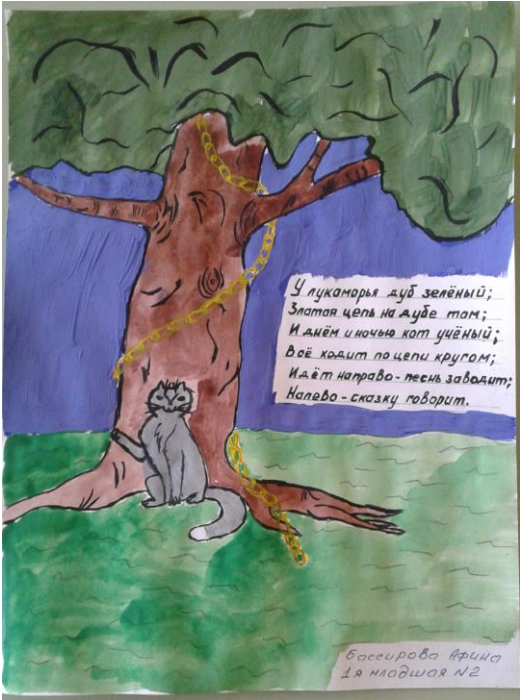 У лукоморья дуб зелёный;
Златая цепь на дубе том;
И днём и ночью кот учёный;
Всё ходит по цепи кругом;
Идёт направо - песнь заводит;
Налево - сказку говорит.
Бассирова Афина
1я младшая №2